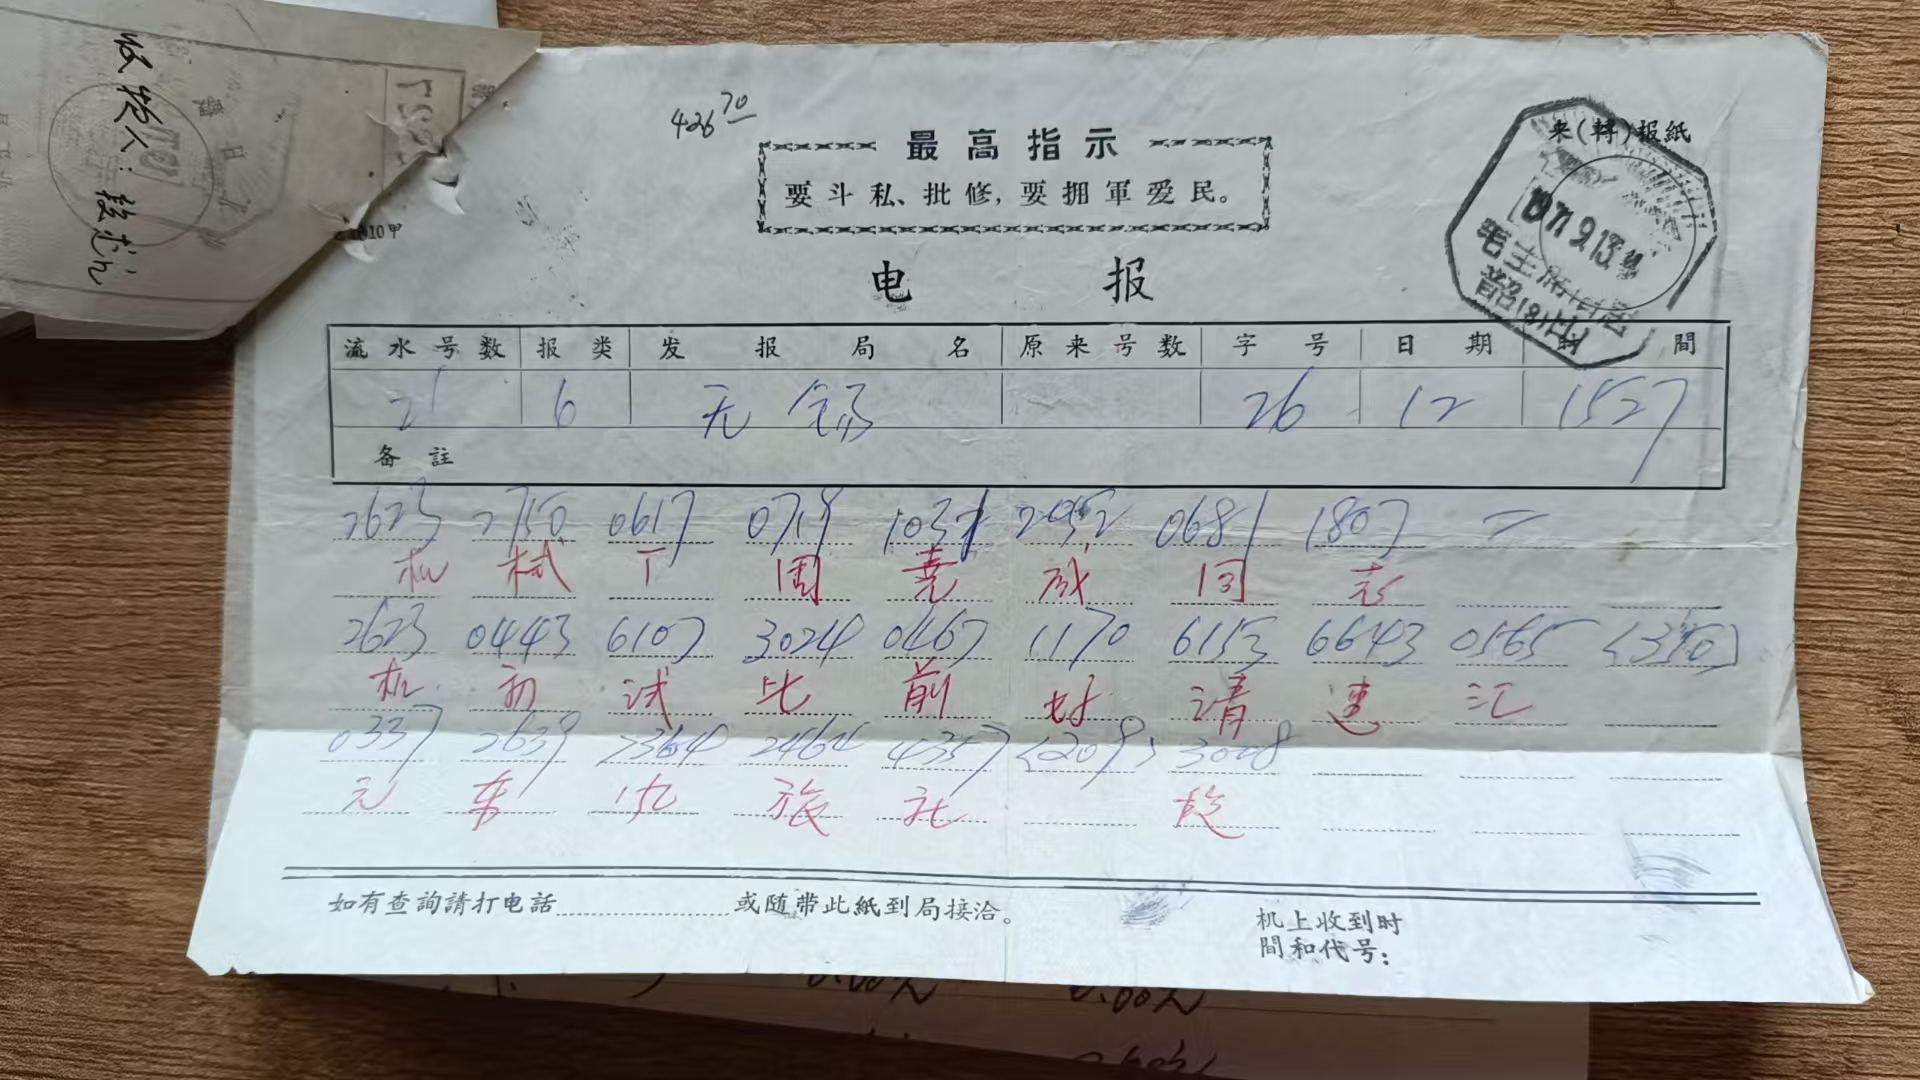 收报人:
426 70
来(轉)报紙
最高指示
要斗私、批修,要拥軍爱民。
1971 9.13
毛主席旧居
韶山
10甲
电 报
流水号数 报类 发报局名 原来号数 字号 日期 时間
21 6 无錫 26 12 1527
备註
2623 2750 0617 0719 1031 2052 0681 1807 =
机械厂周尧成同志
2623 0443 6107 3024 0467 1170 6153 6643 0565 (350)
机初试比前好请速汇
0337 2639 2464 4357 (209) 3028
元东 旅社
如有查詢請打电話 或随带此紙到局接洽。
机上收到时
間和代号:
0.00元 0.00元